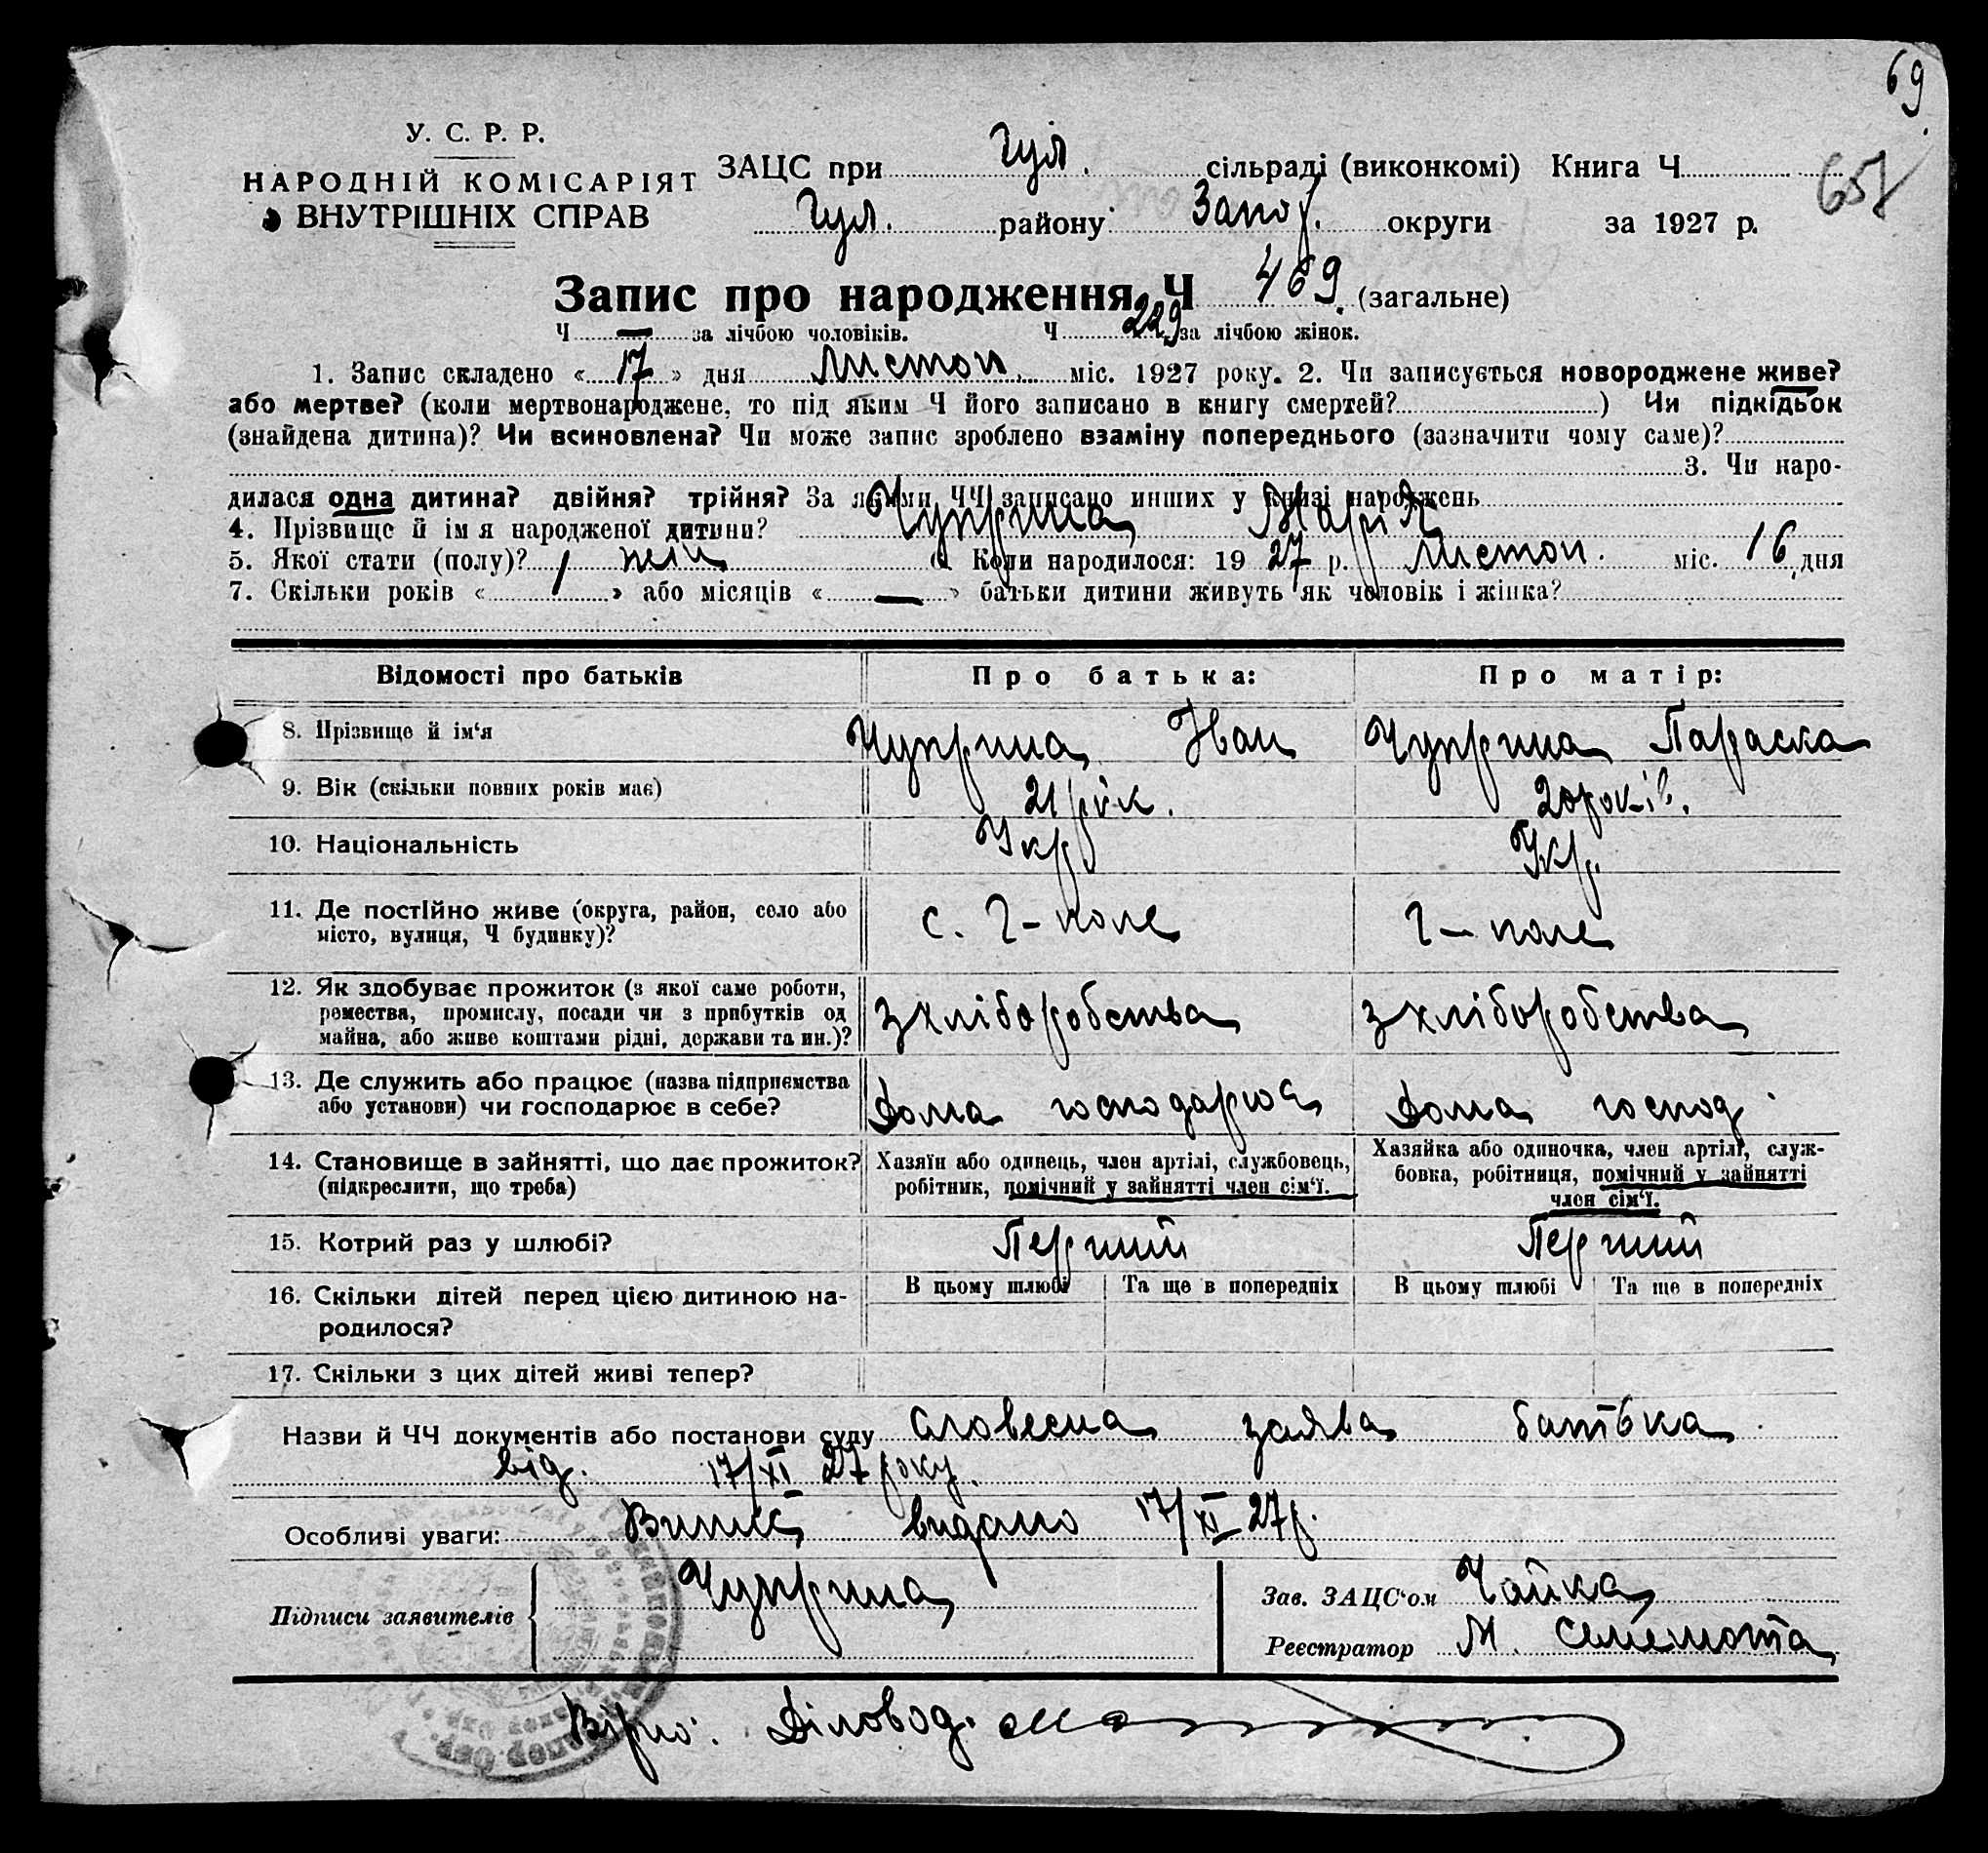 69
657
У. С. Р. Р.
НАРОДНІЙ КОМІСАРІЯТ
ВНУТРІШНІХ СПРАВ
ЗАЦС при Гул. сільраді (виконкомі) Книга Ч
Гул. району Запор. округи за 1927 р.
Запис про народження Ч 469. (загальне)
Ч — за лічбою чоловіків. Ч 229 за лічбою жінок.
1. Запис складено « 17 » дня Листоп. міс. 1927 року. 2. Чи записується новороджене живе?
або мертве? (коли мертвонароджене, то під яким Ч його записано в книгу смертей? ) Чи підкідьок
(знайдена дитина)? Чи всиновлена? Чи може запис зроблено взаміну попереднього (зазначити чому саме)?
3. Чи наро-
дилася одна дитина? двійня? трійня? За якими ЧЧ записано инших у книзі народжень
4. Прізвище й ім я народженої дитини? Чуприна Марія
5. Якої стати (полу)? жін 6. Коли народилося: 19 27 р. Листоп. міс. 16 дня
7. Скільки років « 1 » або місяців « — » батьки дитини живуть як чоловік і жінка?
Відомості про батьків Про батька: Про матір:
8. Прізвище й ім'я Чуприна Іван Чуприна Параска
9. Вік (скільки повних років має) 21 рік. 20 років.
10. Національність Укр Укр.
11. Де постійно живе (округа, район, село або
місто, вулиця, Ч будинку)? с. Г-поле Г-поле
12. Як здобуває прожиток (з якої саме роботи,
ремества, промислу, посади чи з прибутків од
майна, або живе коштами рідні, держави та ин.)? з хліборобства з хліборобства
13. Де служить або працює (назва підприємства
або установи) чи господарює в себе? Дома господарює Дома господ.
14. Становище в зайнятті, що дає прожиток?
(підкреслити, що треба)
Хазяїн або одинець, член артілі, службовець,
робітник, помічний у зайнятті член сім'ї.
Хазяйка або одиночка, член артілі, служ-
бовка, робітниця, помічний у зайнятті
член сім'ї.
15. Котрий раз у шлюбі? Перший Перший
16. Скільки дітей перед цією дитиною на-
родилося?
В цьому шлюбі Та ще в попередніх В цьому шлюбі Та ще в попередніх
17. Скільки з цих дітей живі тепер?
Назви й ЧЧ документів або постанови суду словесна заява батька
від. 17/XI 27 року.
Особливі уваги: видано 17/XI 27 р.
Підписи заявителів Чуприна
Зав. ЗАЦС'ом Чайка
Реєстратор М.
Вірно: Діловод.